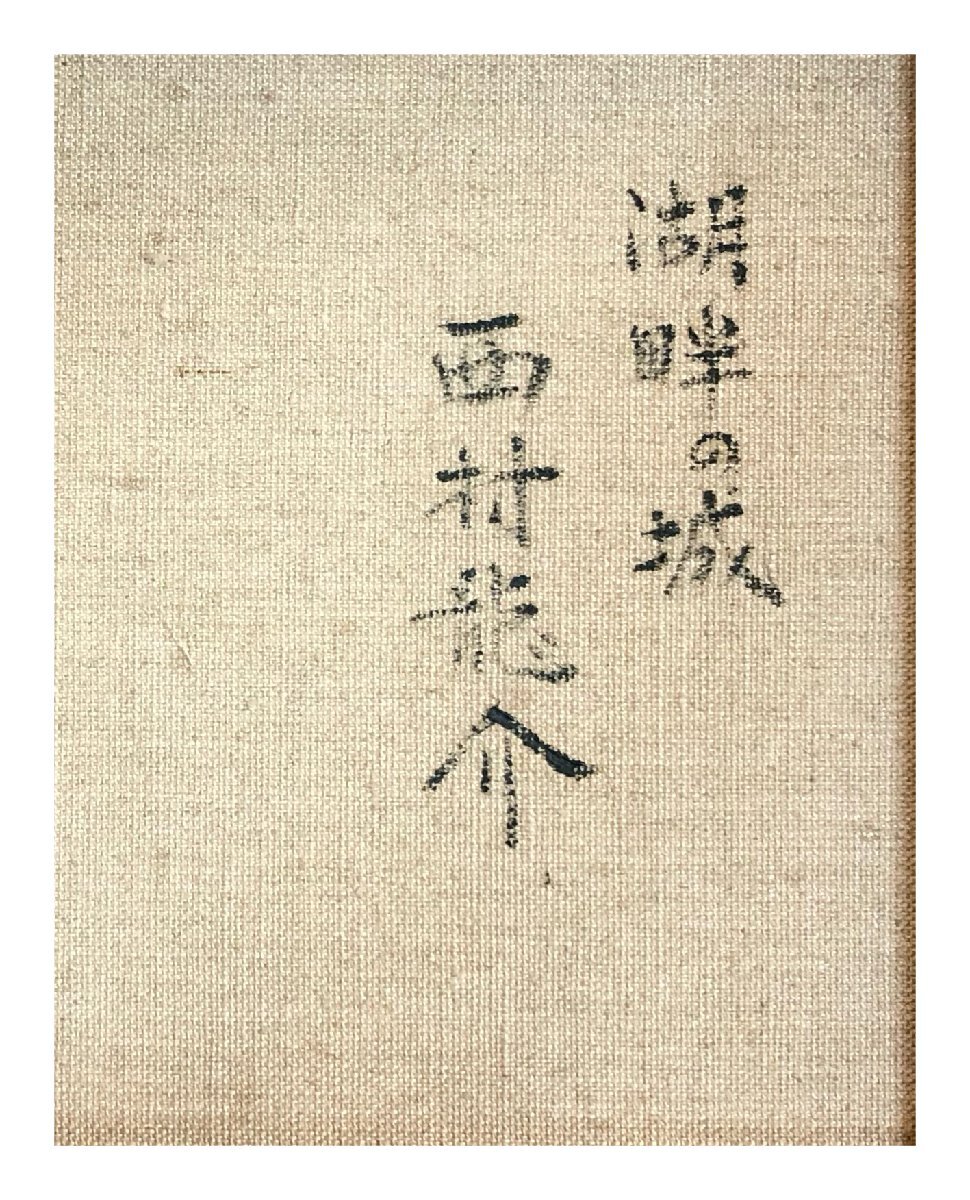 湖畔の城
西村龍介